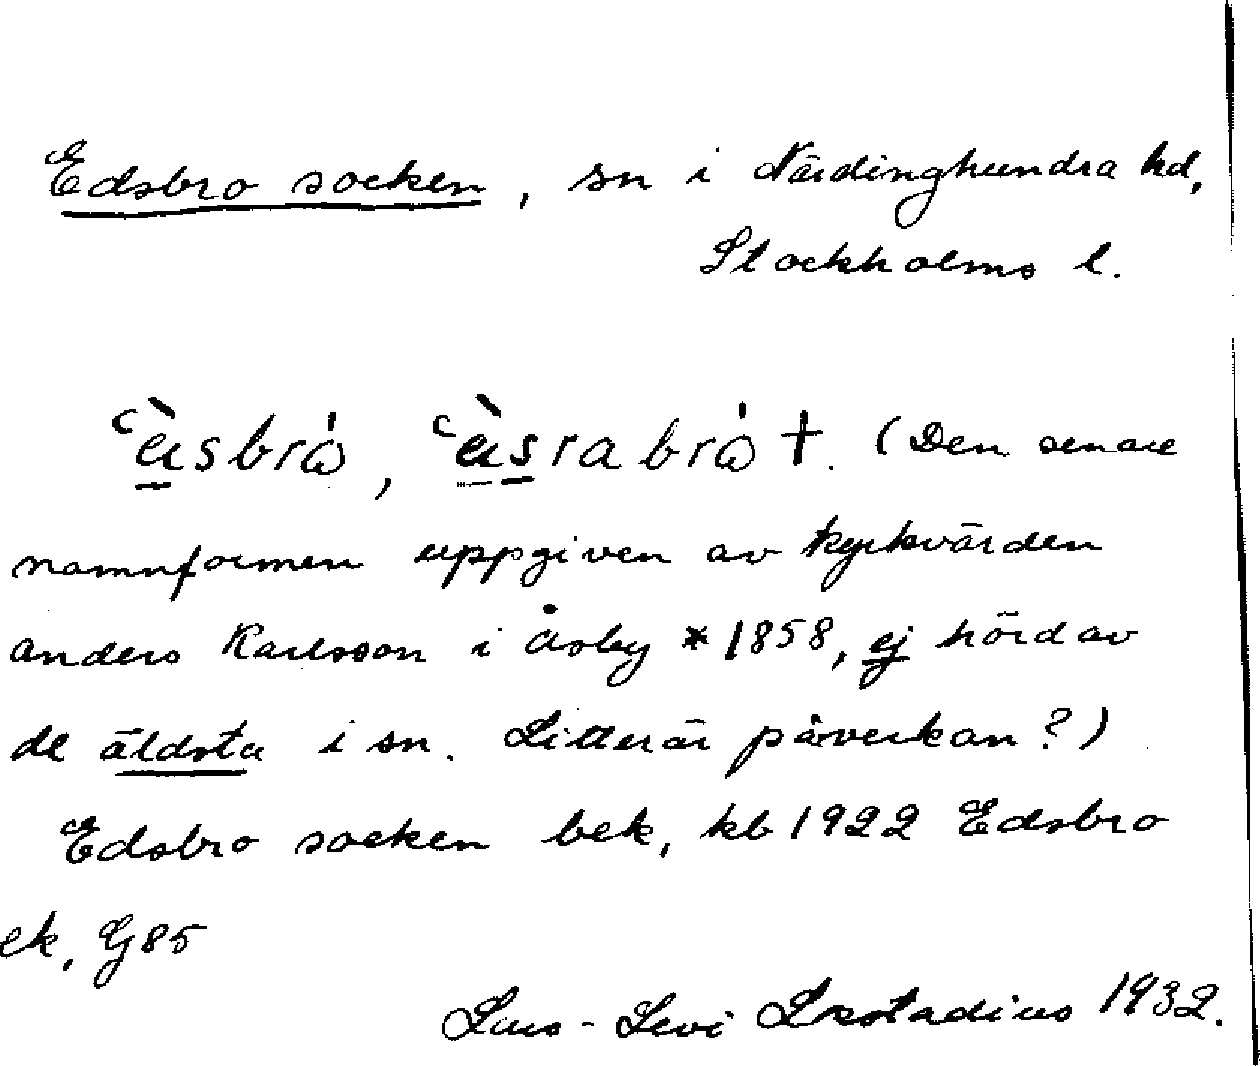 Edsbro socken, sn i Närdinghundra hd,
Stockholms l.
(Den senare
namnformen uppgiven av kyrkvärden
anders Karlsson i Åsby *1858, ej hörd av
de äldsta i sn. Litterär påverkan?)
Edsbro socken bek, kb 1922 Edsbro
ek, G85
Lars-Levi Læstadius 1932.